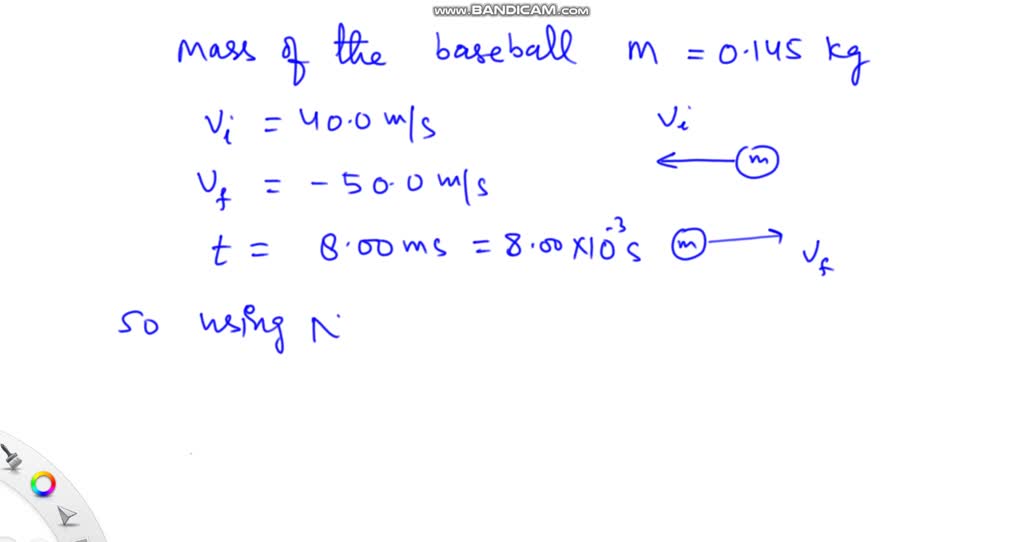 www.BANDICAM.com
mass of the baseball m = 0.145 kg
vi = 40.0 m/s vi
m
vf = -50.0 m/s
t = 8.00 ms = 8.00 ×10⁻³ s m vf
so using N